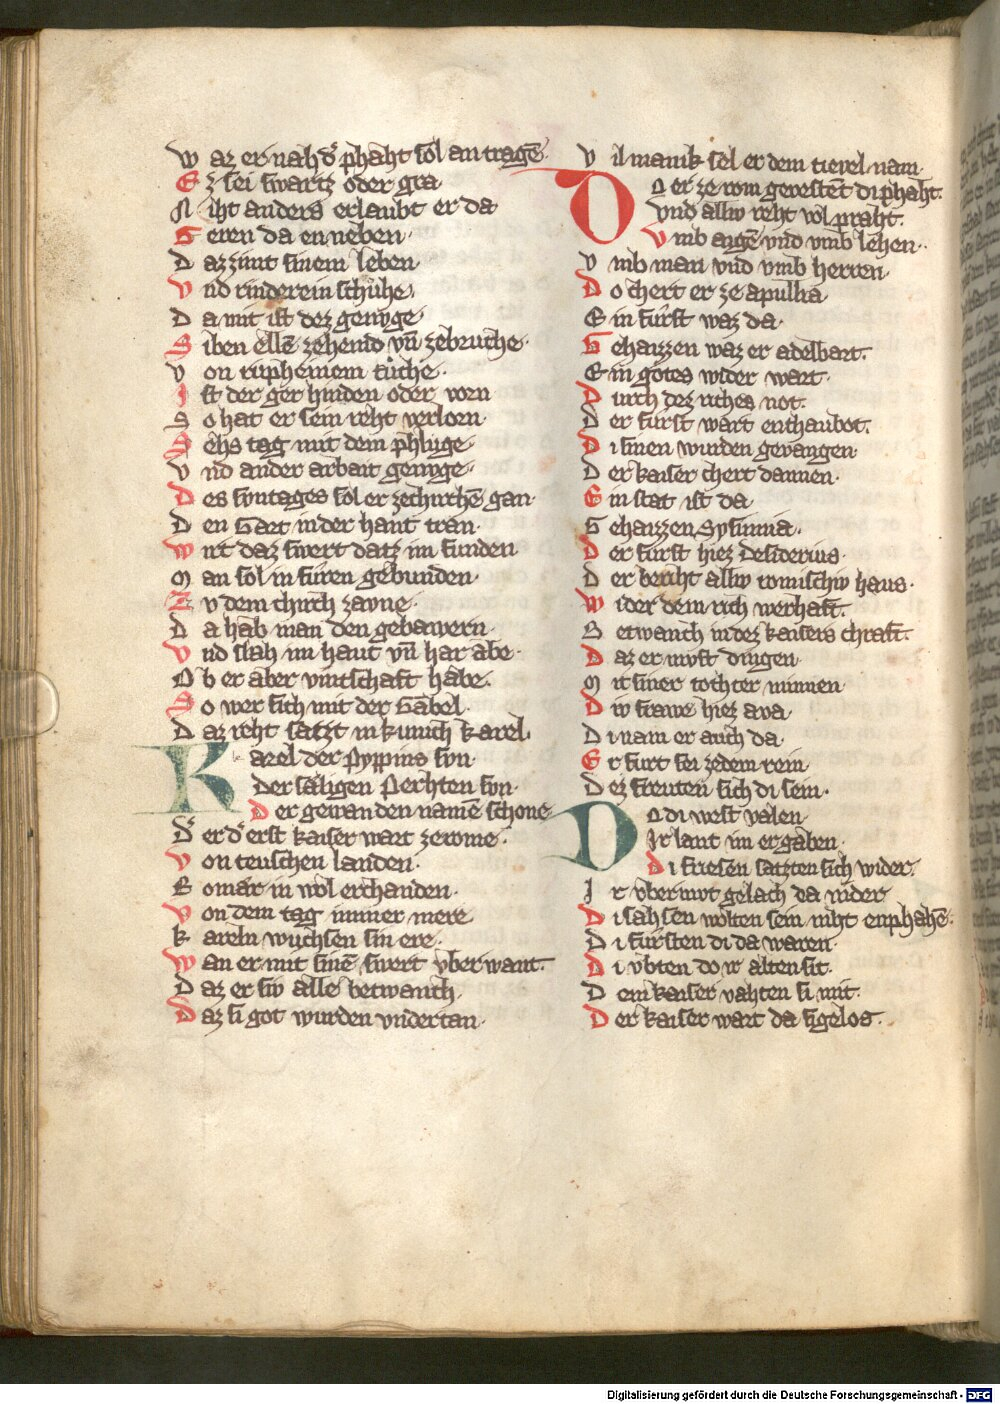 W az er nah dˢ phaht sol an tragē
E z sei swartz oder gra
N iht anders erlaubt er da
G eren da enneben
D az zimt sinem leben
V nd rinderein schůhe
D a mit ist dez genvge
S iben ellē zehemd vn̄ zebruͦche
V on rupheinem tůche
I st der ger hinden oder vorn
S o hat er sein reht verlorn
S ehs tag mit dem phluge
V nd ander arbait genvge
D es svntages sol er zechirchē gan
D en Gart in der hant tran
W irt daz swert datz im funden
M an sol in fůren gebunden
Z v dem chirch zavne
D a hab man den gebawern
V nd slah im haut vn̄ har abe
O b er aber vintschaft habe
S o wer sich mit der Gabel
D az reht satzt in kunich karel
K arel der Pyppins svn
Der saͤligen Perchten svn
D er gewan den namē schone
D er dˢ erst kaiser wart zerome
V on teuschen landen
G omaͤr in wol erchanden
V on dem tag immer mere
K areln wůchsen sin ere
W an er mit sinē swert vberwant
D az er siv alle betwanch
D az si got wurden vndertan
V il manik sel er dem tievel nam
D o er ze rom gevestēt di phaht
Vnd alliv reht wol praht
V mb aigē vnd vmb lehen
V mb man vnd vmb herren
D o chert er ze apulha
E in furst waz da
G ehaizzen waz er adelbart
E in gotes wider wart
D urch dez riches not
D er furst wart enthaubot
D i sinen wurden gevangen
D er kaiser chert dannen
E in stat ist da
G ehaizzen Sysinnia
D er furst hiez Desiderius
D er bercht alliv romischiv haus
W ider dem rich werhaft
B etwanch in dez kaisers chraft
D az er mvst dingen
M it siner tochter minnen
D iv frawe hiez ava
D i nam er auch da
E r furt sei zedem rein
D ez freuten sich di sein
D o di west valen
Ir lant im ergaben
D i friesen satzten sich wider
I r vbermvt gelach da nider
D i sahsen wolten sein niht enphahē
D i fůrsten di da waren
D i vbten do ir alten sit
D em kaiser vahten si mit
D er kaiser wart da sigelos
Digitalisierung gefördert durch die Deutsche Forschungsgemeinschaft - DFG